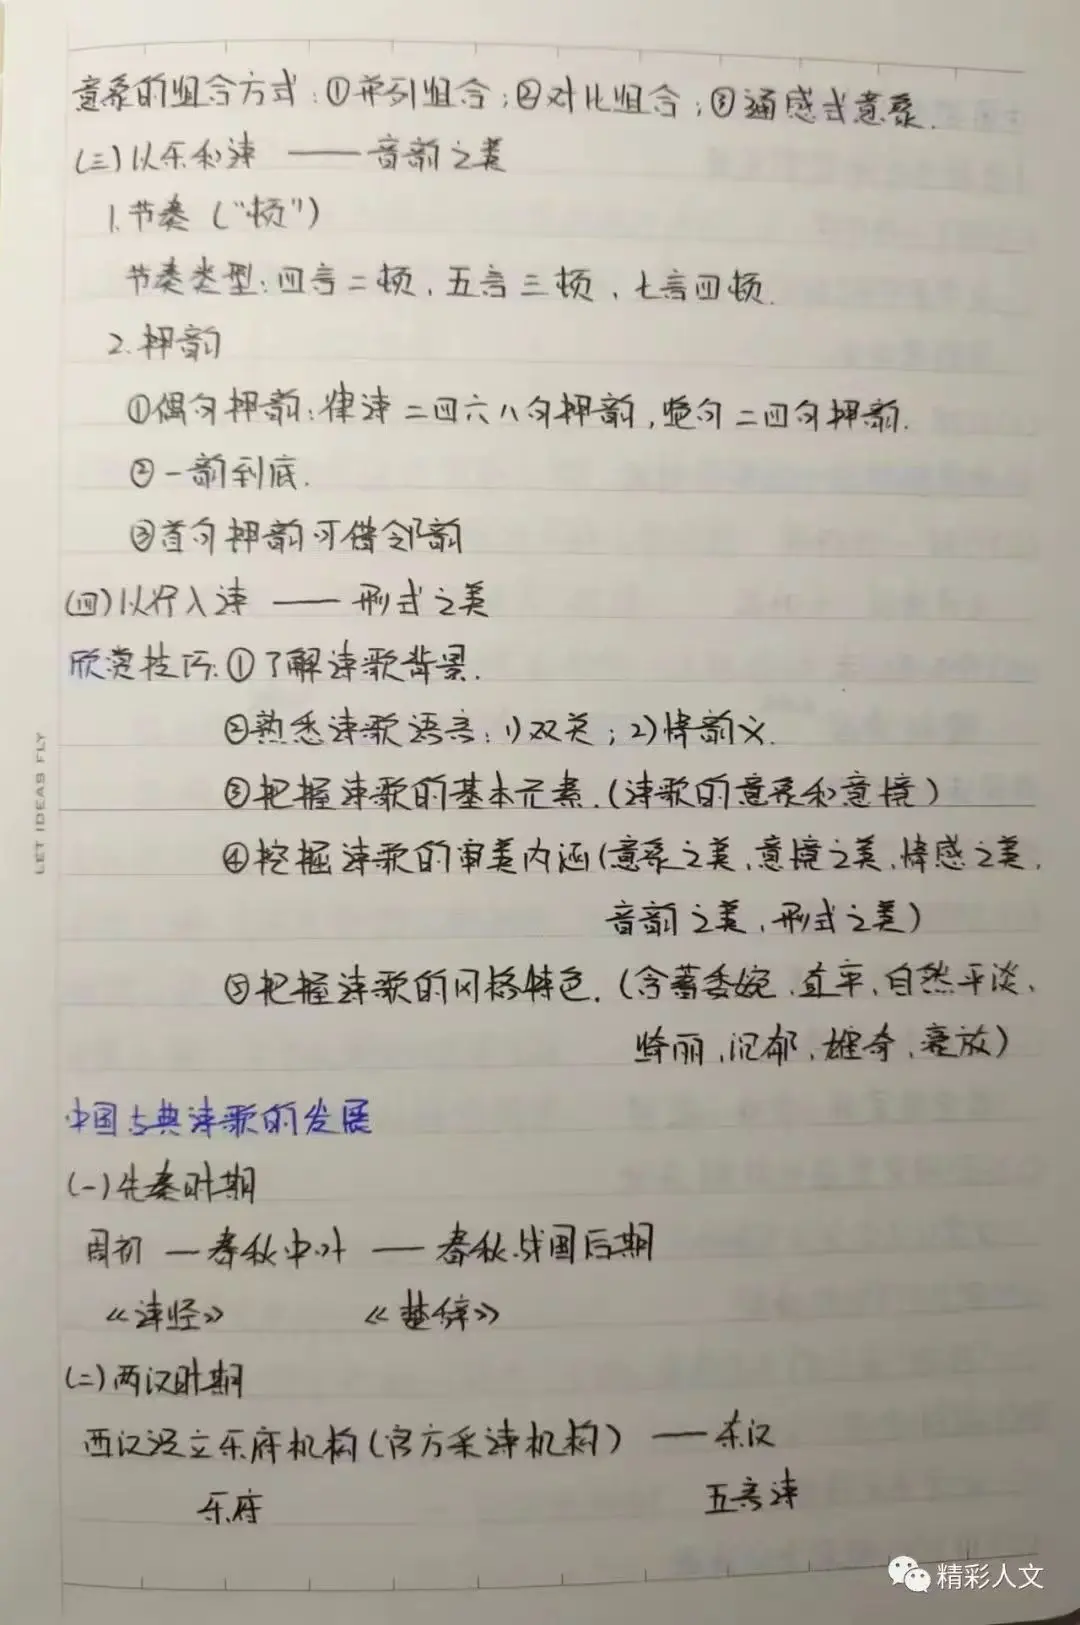 意象的组合方式：①并列组合；②对比组合；③通感式意象.
(三)以乐和诗 —— 音韵之美
1.节奏（“顿”）
节奏类型：四言二顿、五言三顿、七言四顿.
2.押韵
①偶句押韵：律诗二四六八句押韵，绝句二四句押韵.
②一韵到底.
③首句押韵可借邻韵
(四)以行入诗 —— 形式之美
欣赏技巧：①了解诗歌背景.
②熟悉诗歌语言：1)双关；2)情韵义.
③把握诗歌的基本元素.(诗歌的意象和意境)
④挖掘诗歌的审美内涵(意象之美、意境之美、情感之美、
音韵之美、形式之美)
⑤把握诗歌的风格特色.(含蓄委婉、直率、自然平淡、
绮丽、沉郁、雄奇、豪放)
中国古典诗歌的发展
(一)先秦时期
周初 — 春秋中叶 — 春秋战国后期
《诗经》 《楚辞》
(二)两汉时期
西汉设立乐府机构(官方采诗机构) — 东汉
乐府 五言诗
LET IDEAS FLY
精彩人文